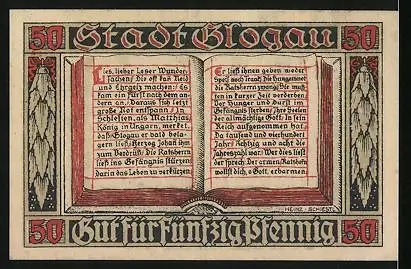 50 Stadt Glogau 50
Lies, lieber Leser Wunder-
sachen, Die oft kan Neid
und Ehrgeiz machen: Es
kam ein Fürst nach dem an-
dern an, Daraus sich letzt
große Not entspann, In
Schlesien, als Matthias,
König in Ungarn, merket,
daß Glogau er bald bela-
gern ließ, Herzog Johan ihm
zum Verdruß. Die Ratsherrn
ließ ins Gefängnis stürzen
Darin das Leben zu verkürzen
Er ließ ihnen geben weder
Speis noch Trank Die Hungersnot
die Ratsherrn zwang Sie muß-
ten in kurzer Zeit verderben
Vor Hunger und Durst im
Gefängnis sterben, Ihre Seelen
der allmächtige Gott, In sein
Reich aufgenommen hat.
Da tausend und vierhundert
Jahr Achtzig und acht die
Jahreszahl war, Wer dies liest
der sprech: Der armen Ratsherrn
wollst dich, o Gott, erbarmen
HEINZ SCHIESTL
50 Gut für Fünfzig Pfennig 50